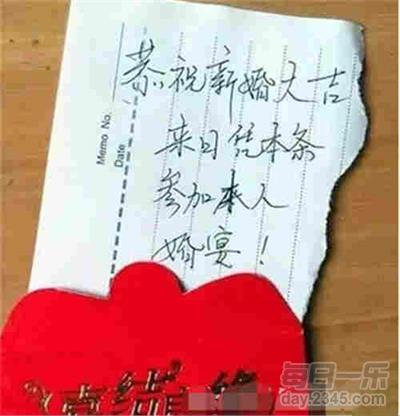 恭祝新婚大吉
来日凭本条
参加本人
婚宴！
Memo No.
Date
每日一乐
day.2345.com